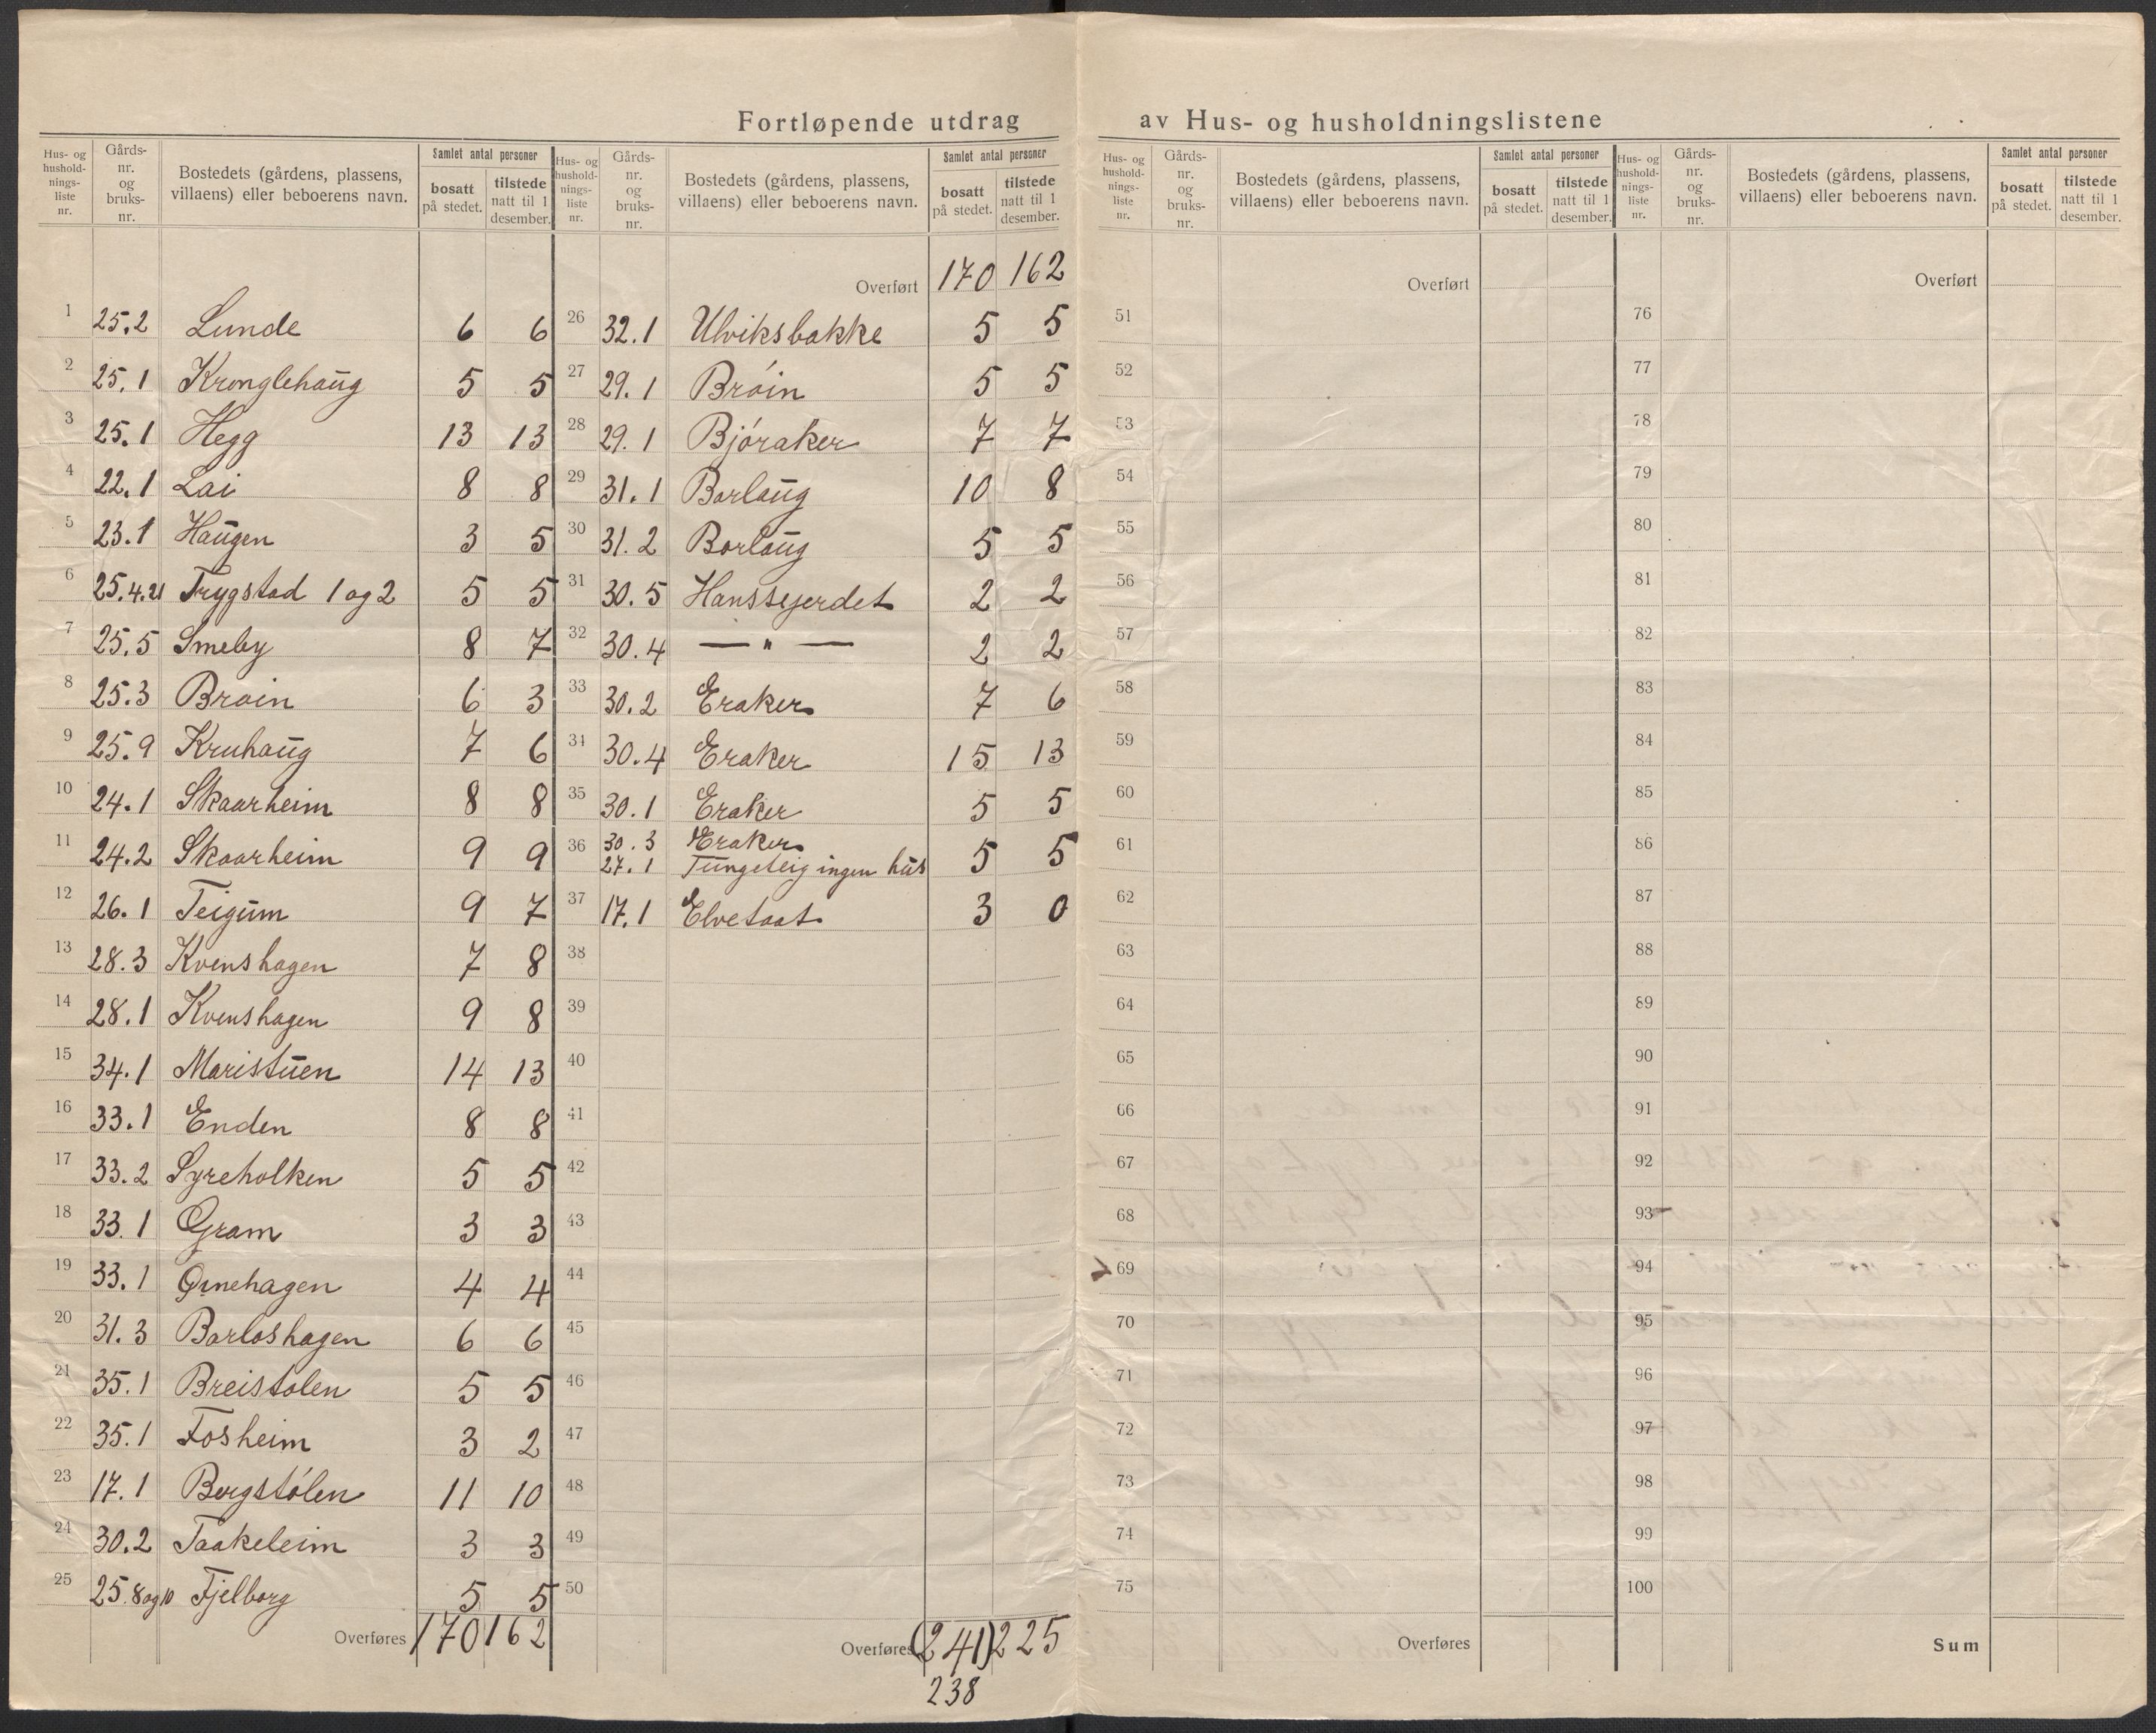 Fortløpende utdrag av Hus- og husholdningslistene
Hus- og hushold- nings- liste nr. | Gårds- nr. og bruks- nr. | Bostedets (gårdens, plassens, villaens) eller beboerens navn. | Samlet antal personer | bosatt på stedet. | tilstede natt til 1 desember.
Hus- og hushold- nings- liste nr. | Gårds- nr. og bruks- nr. | Bostedets (gårdens, plassens, villaens) eller beboerens navn. | Samlet antal personer | bosatt på stedet. | tilstede natt til 1 desember.
1 25.2 Lunde 6 6
2 25.1 Kronglehaug 5 5
3 25.1 Hegg 13 13
4 22.1 Lai 8 8
5 23.1 Haugen 3 5
6 25.4.21 Trygstad 1 og 2 5 5
7 25.5 Smeby 8 7
8 25.3 Broin 6 3
9 25.9 Kruhaug 7 6
10 24.1 Skaarheim 8 8
11 24.2 Skaarheim 9 9
12 26.1 Teigum 9 7
13 28.3 Kvenshagen 7 8
14 28.1 Kvenshagen 9 8
15 34.1 Maristuen 14 13
16 33.1 Enden 8 8
17 33.2 Syreholken 5 5
18 33.1 Gram 3 3
19 33.1 Ørnehagen 4 4
20 31.3 Borloshagen 6 6
21 35.1 Breistolen 5 5
22 35.1 Fosheim 3 2
23 17.1 Borgstólen 11 10
24 30.2 Taakeleim 3 3
25 25.8og10 Fjelborg 5 5
Overføres 170 162
Overført 170 162
26 32.1 Ulviksbakke 5 5
27 29.1 Bróin 5 5
28 29.1 Bjóraker 7 7
29 31.1 Borlaug 10 8
30 31.2 Borlaug 5 5
31 30.5 Hansgjerdet 2 2
32 30.4 — " — 2 2
33 30.2 Eraker 7 6
34 30.4 Eraker 15 13
35 30.1 Eraker 5 5
36 30.3 Eraker
27.1 Tungeteig ingen hus 5 5
37 17.1 Elvetaat 3 0
38
39
40
41
42
43
44
45
46
47
48
49
50
Overføres (241) 225
238
Hus- og hushold- nings- liste nr. | Gårds- nr. og bruks- nr. | Bostedets (gårdens, plassens, villaens) eller beboerens navn. | Samlet antal personer | bosatt på stedet. | tilstede natt til 1 desember.
Overført
51
52
53
54
55
56
57
58
59
60
61
62
63
64
65
66
67
68
69
70
71
72
73
74
75
Overføres
Hus- og hushold- nings- liste nr. | Gårds- nr. og bruks- nr. | Bostedets (gårdens, plassens, villaens) eller beboerens navn. | Samlet antal personer | bosatt på stedet. | tilstede natt til 1 desember.
Overført
76
77
78
79
80
81
82
83
84
85
86
87
88
89
90
91
92
93
94
95
96
97
98
99
100
Sum